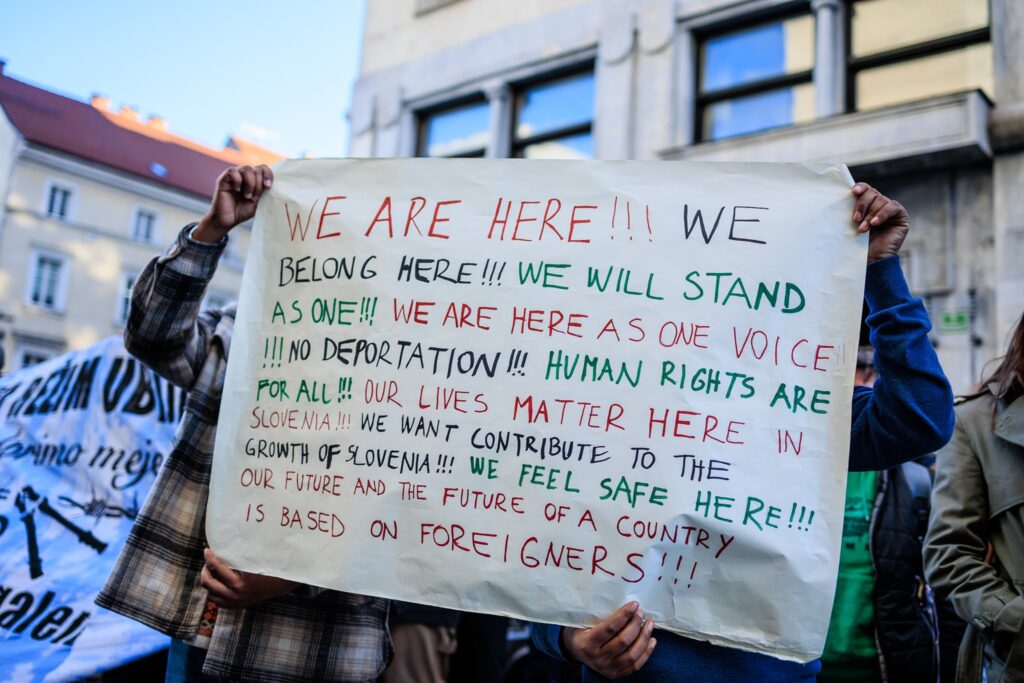 WE ARE HERE!!! WE
BELONG HERE!!! WE WILL STAND
AS ONE!!! WE ARE HERE AS ONE VOICE
!!! NO DEPORTATION!!! HUMAN RIGHTS ARE
FOR ALL!!! OUR LIVES MATTER HERE IN
SLOVENIA!!! WE WANT CONTRIBUTE TO THE
GROWTH OF SLOVENIA!!! WE FEEL SAFE HERE!!!
OUR FUTURE AND THE FUTURE OF A COUNTRY
IS BASED ON FOREIGNERS!!!
REŽIM UBIJ
meje